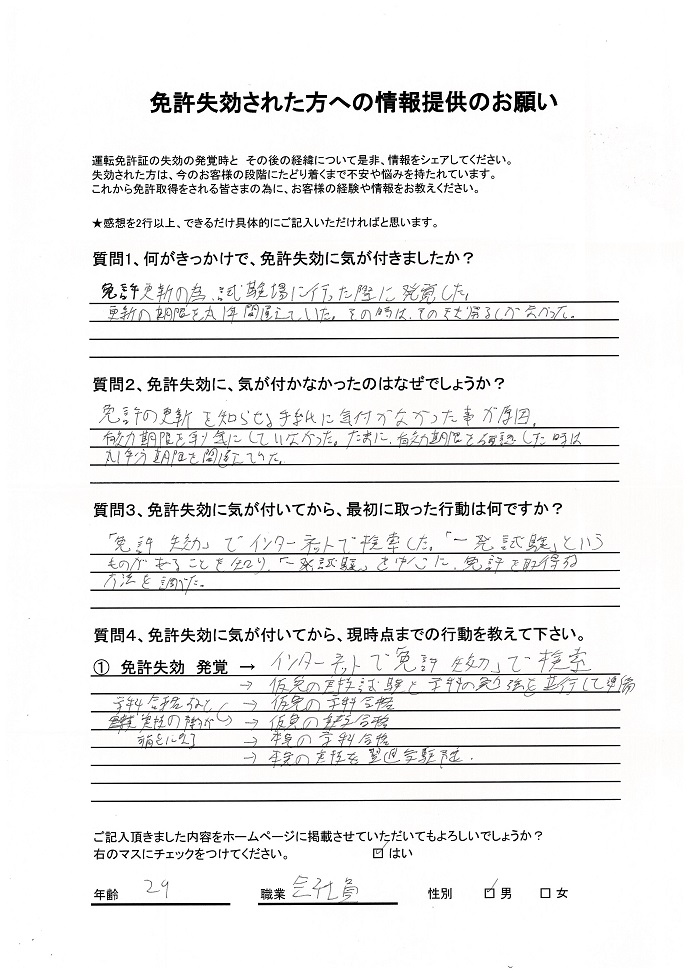 免許失効された方への情報提供のお願い
運転免許証の失効の発覚時と その後の経緯について是非、情報をシェアしてください。
失効された方は、今のお客様の段階にたどり着くまで不安や悩みを持たれています。
これから免許取得をされる皆さまの為に、お客様の経験や情報をお教えください。
★感想を2行以上、できるだけ具体的にご記入いただければと思います。
質問1、何がきっかけで、免許失効に気が付きましたか？
免許更新の為、試験場に行った際に発覚した。
更新の期限を丸1年間違えていた。その時は、そのまま帰るしかなかった。
質問2、免許失効に、気が付かなかったのはなぜでしょうか？
免許の更新を知らせる手紙に気付かなかった事が原因。
有効期限を気にしていなかった。たまに、有効期限を確認した時は
丸1年分期限を間違えていた。
質問3、免許失効に気が付いてから、最初に取った行動は何ですか？
「免許 失効」でインターネットで検索した。「一発試験」という
ものがあることを知り、「一発試験」を中心に、免許を取得する
方法を調べた。
質問4、免許失効に気が付いてから、現時点までの行動を教えて下さい。
① 免許失効 発覚 → インターネットで「免許 失効」で検索
→ 仮免の実技試験と学科の勉強を並行して準備
学科合格なし → 仮免の学科合格
実技の → 仮免の 合格
→ 本免の学科合格
→ 本免の実技を翌週受験予定.
ご記入頂きました内容をホームページに掲載させていただいてもよろしいでしょうか？
右のマスにチェックをつけてください。 ☑ はい
年齢 29 職業 会社員 性別 ☑ 男 □ 女